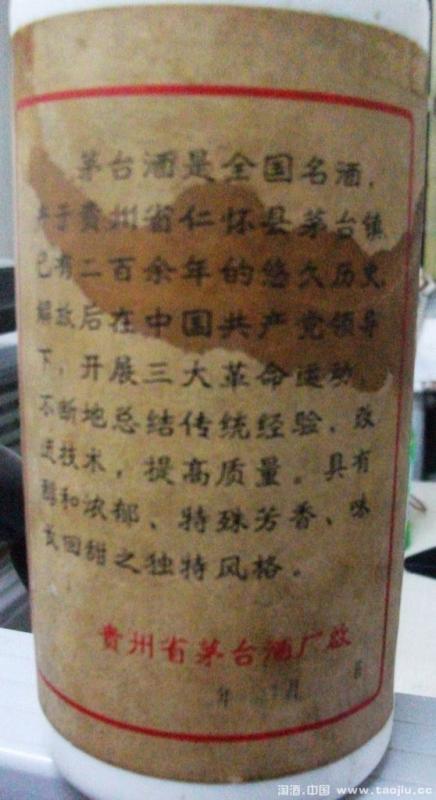 茅台酒是全国名酒，
产于贵州省仁怀县茅台镇，
已有二百余年的悠久历史，
解放后在中国共产党领导
下，开展三大革命运动，
不断地总结传统经验，改
进技术，提高质量。具有
醇和浓郁、特殊芳香、味
长回甜之独特风格。
贵州省茅台酒厂啟
年 月 日
淘酒.中国 www.taojiu.cc